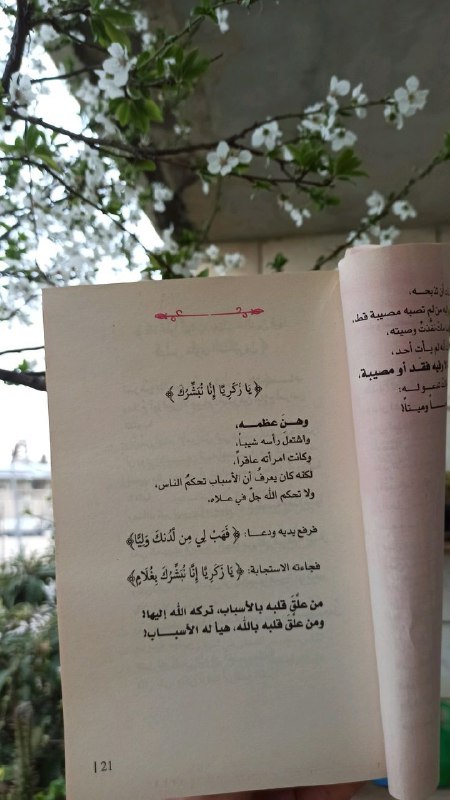 ﴿ يَا زَكَرِيَّا إِنَّا نُبَشِّرُكَ ﴾
وهنَ عظمـــه،
واشتعلَ رأسه شيباً،
وكانت امرأته عاقراً،
لكنه كان يعرفُ أن الأسباب تحكمُ الناس،
ولا تحكم الله جلَّ في علاه.
فرفع يديه ودعا: ﴿ فَهَبْ لِي مِن لَّدُنكَ وَلِيًّا﴾
فجاءته الاستجابة: ﴿ يَا زَكَرِيَّا إِنَّا نُبَشِّرُكَ بِغُلَامٍ﴾
من علَّقَ قلبه بالأسباب، تركه الله إليها!
ومن علَّقَ قلبه بالله، هيأ له الأسبـــاب!
21
من لم تصبه مصيبة قط،
وصيته،
يأت أحد،
فقد أو مصيبة،
وميتاً!